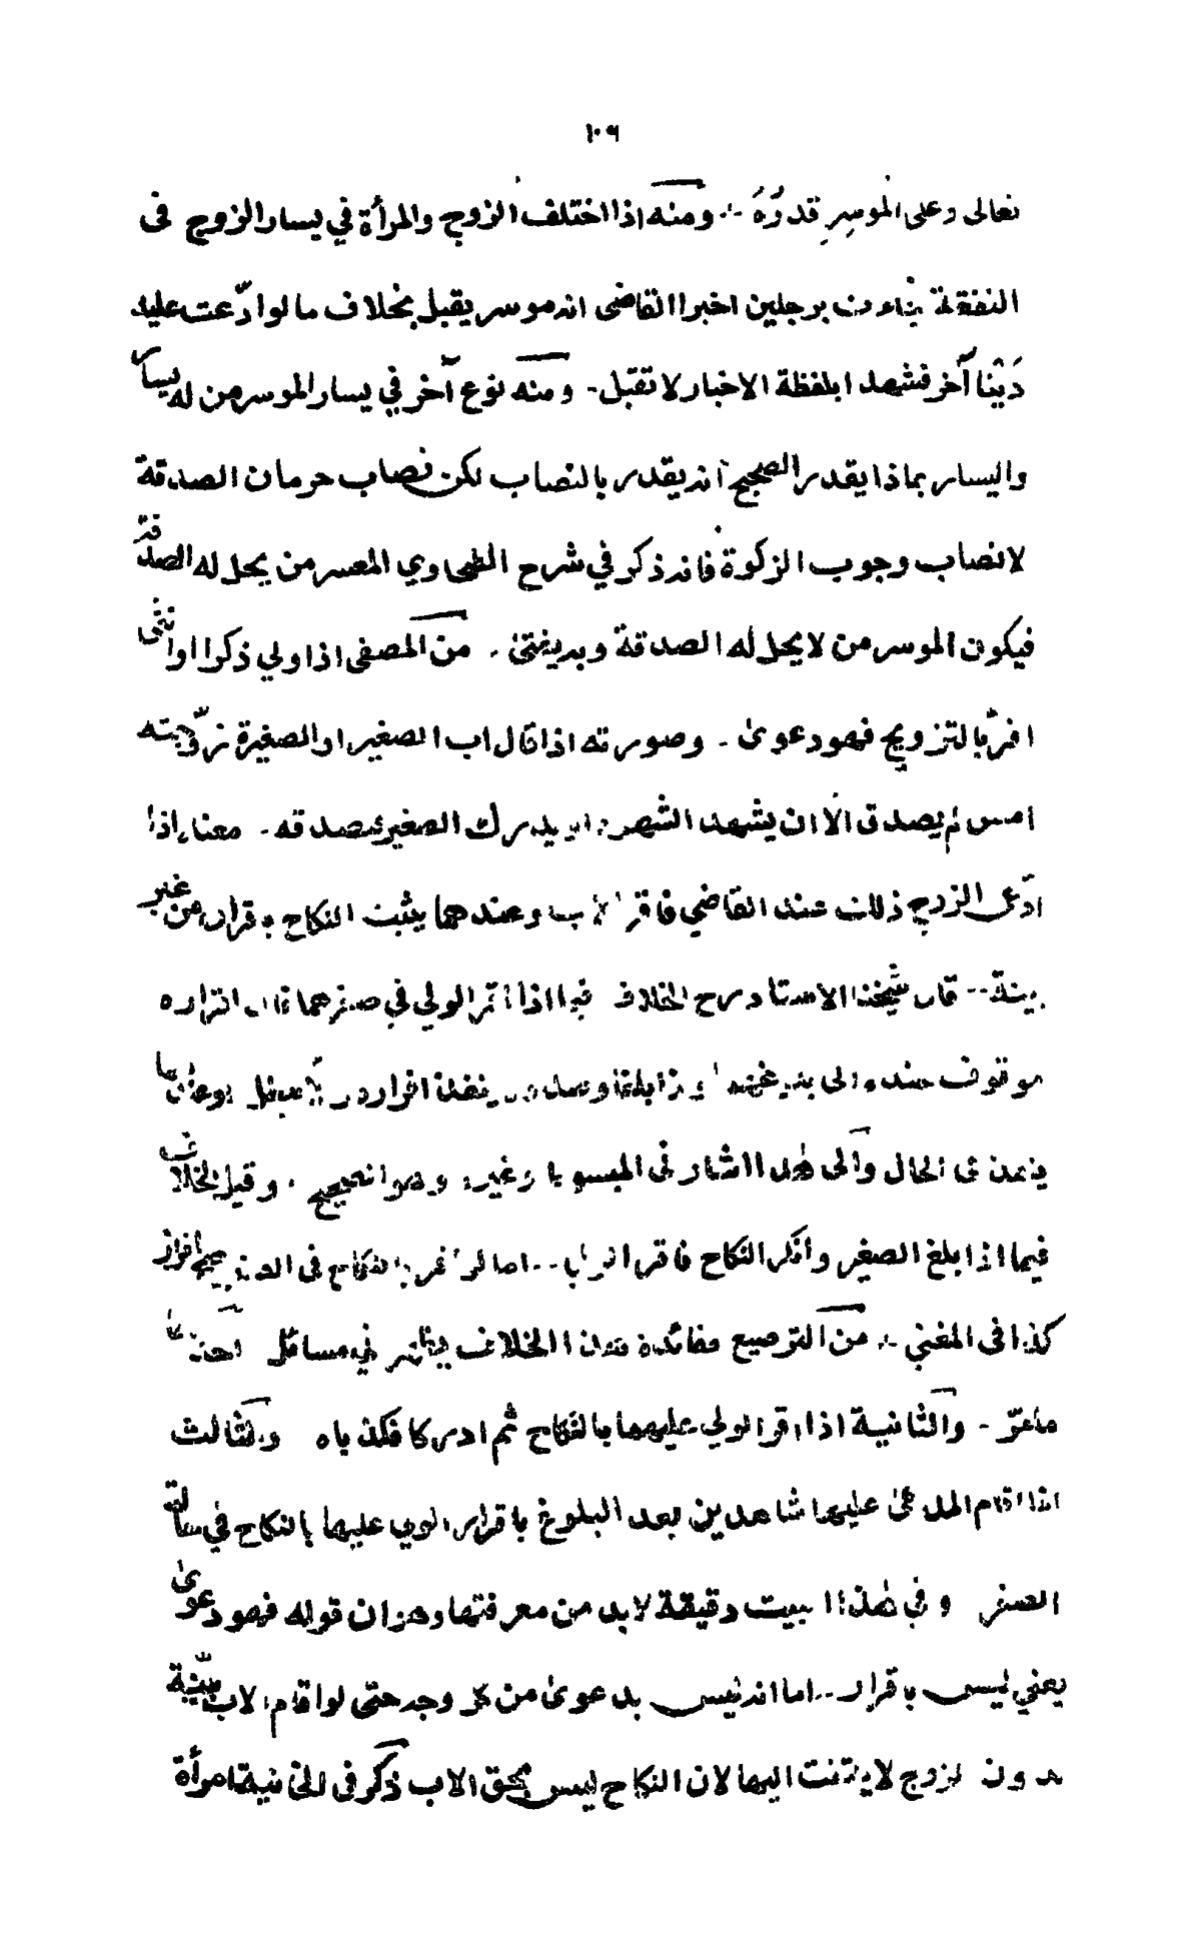 ١٠٩
تعالى وعلى الموسر قدرُهُ ∴ ومنه اذا اختلف الزوج والمرأة في يسار الزوج فى
النفقة برجلين اخبرا القاضى انه موسر يقبل بخلاف ما لو ادّعت عليه
دَيْنا آخر فشهدا بلفظة الاخبار لا تقبل - ومنه نوع آخر في يسار الموسر من له يسار
واليسار بماذا يقدر الصحيح انه يقدر بالنصاب لكن نصاب حرمان الصدقة
لا نصاب وجوب الزكوة فانه ذكر في شرح الطحاوي المعسر من يحل له الصدقة
فيكون الموسر من لا يحل له الصدقة وبه يفتى . من المصفى اذا ولي ذكرا او انثى
اقرّ بالتزويج فهو دعوى - وصورته اذا قال اب الصغير او الصغيرة زوّجته
امس لم يصدق الا ان يشهد الشهود او يدرك الصغير فيصدقه - معناه اذا
ادّعى الزوج ذلك عند القاضي فاقر الاب وعندهما يثبت النكاح باقراره من غير
بينة -- قال شيخنا الاستاد رح الخلاف فيما اذا اقر الولي في صغرهما فان اقراره
موقوف الى بلوغهما
ينفذ فى الحال والى هذا اشار فى المبسوط وغيره وهو الصحيح . وقيل الخلاف
فيما اذا بلغ الصغير وانكر النكاح فاقر الولي .. اما لو اقر بالنكاح فى الصغر صح اقراره
كذا فى المغني ∴ من الترصيع وفائدة هذا الخلاف يظهر في مسائل احدها
ما مرّ - والثانية اذا اقر الولي عليهما بالنكاح ثم ادركا فكذباه والثالث
اذا اقام المدعى عليها شاهدين بعد البلوغ باقرار الولي عليها بالنكاح في حالة
الصغر وفي هذا البيت دقيقة لا بد من معرفتها وهو ان قوله فهو دعوى
يعني ليس باقرار .. اما انه ليس بدعوى من كل وجه حتى لو اقام الاب بيّنة
بدون الزوج لا يلتفت اليها لان النكاح ليس بحق الاب ذكر فى الخانية امرأة